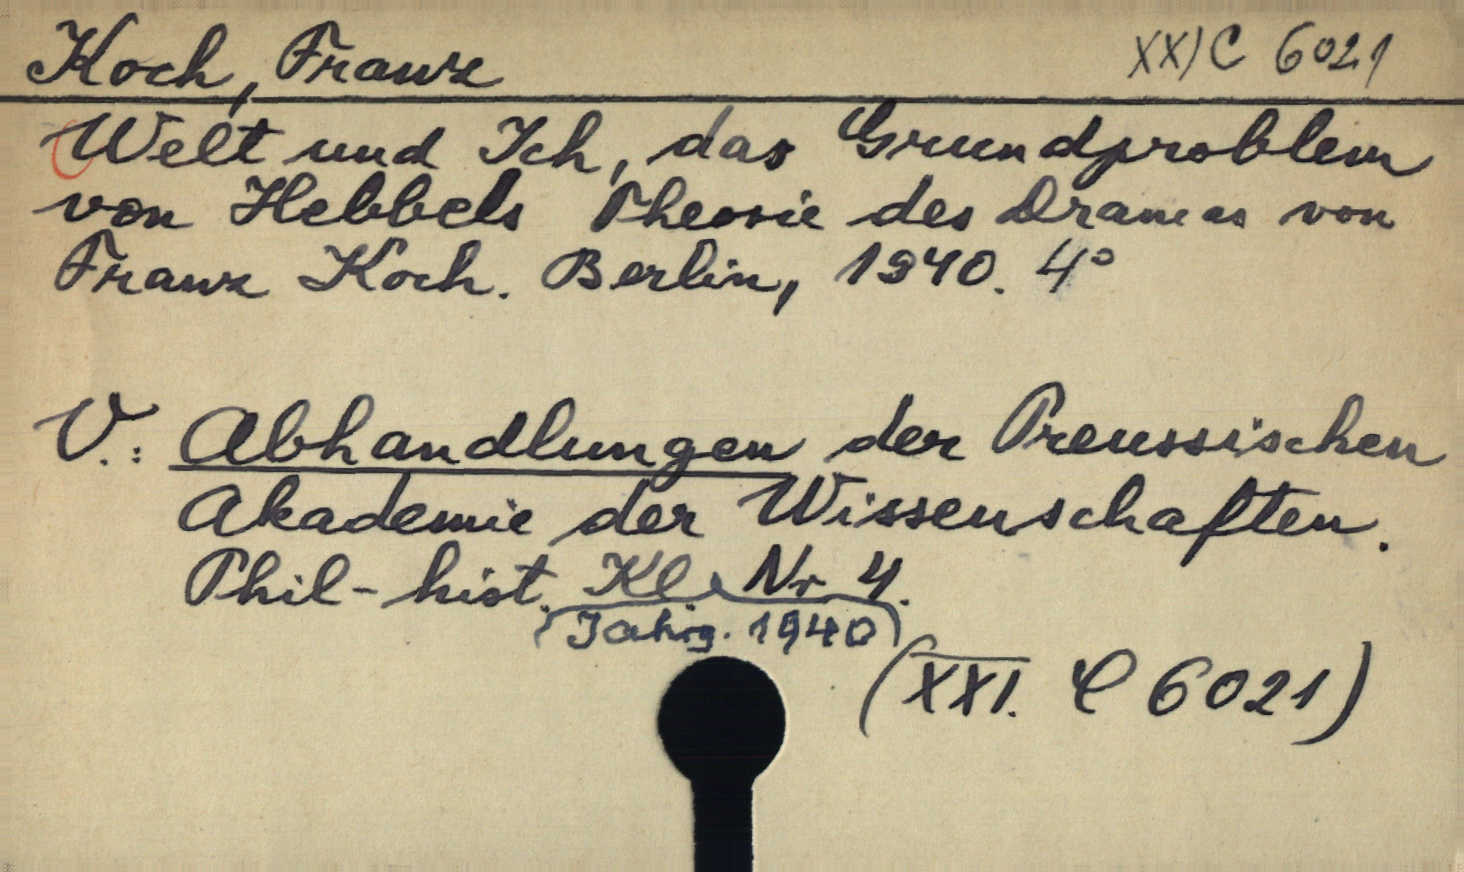 Koch, Franz XXI C 6021
Welt und Ich, das Grundproblem
von Hebbels Theorie des Dramas von
Franz Koch. Berlin, 1940. 4°
V.: Abhandlungen der Preussischen
Akademie der Wissenschaften.
Phil-hist. Kl. Nr 4.
(Jahrg. 1940)
(XXI. C 6021)